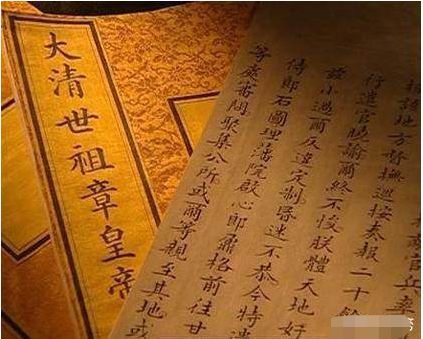 官兵
諸地方督撫巡按奏報二十餘
行遣官曉諭爾終不悛朕體天地好
茲小過爾反違定制昏迷不恭今特遣
侍郎石圖理藩院啟心郎鼐格前往甘
等處審問聚集公所或爾等親至其地或
大清世祖章皇帝